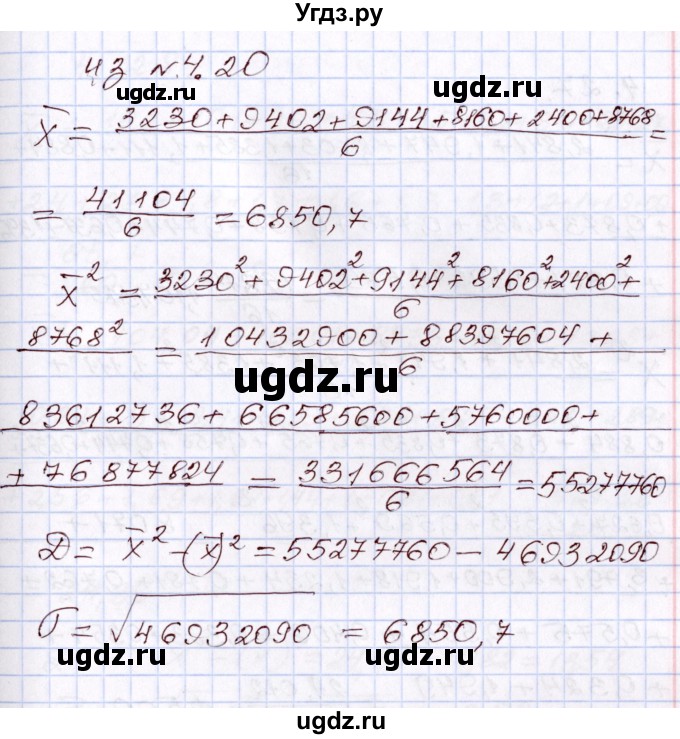 Угдз.ру
ЧЗ №4.20
ugdz.ru ugdz.ru
x̄ = (3230+9402+9144+8160+2400+8768)/6 =
= 41104/6 = 6850,7
x̄² = (3230²+9402²+9144²+8160²+2400²+
8768²)/6 = (10432900+88397604+
ugdz.ru
83612736+66585600+5760000+
+76877824)/6 = 331666564/6 = 55277760
D = x̄² – (x̄)² = 55277760 – 46932090
σ = √46932090 = 6850,7
ugdz.ru ugdz.ru
ugdz.ru